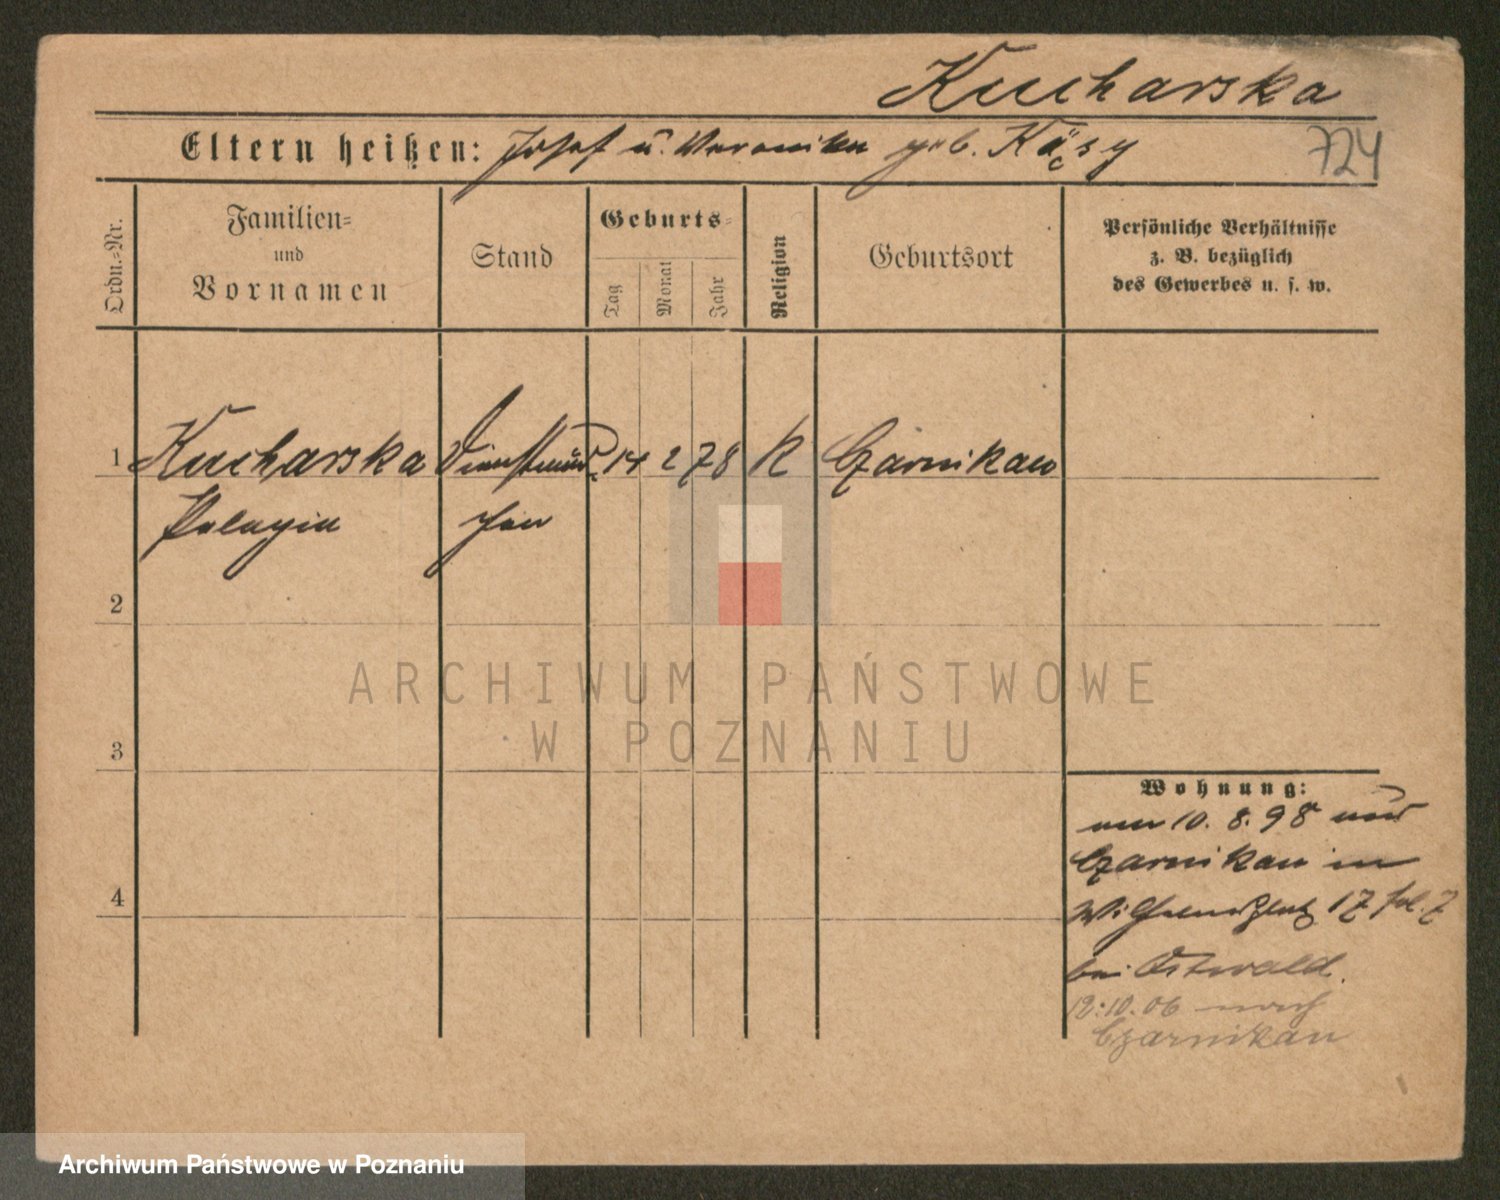 Kucharska
Eltern heißen: Josef u. Veronika geb. Kąsy
724
Ordn.-Nr.
Familien-
und
Vornamen
Stand
Geburts-
Tag
Monat
Jahr
Religion
Geburtsort
Persönliche Verhältnisse
z. B. bezüglich
des Gewerbes u. s. w.
1 Kucharska Dienstmäd- 14 2 78 K Czarnikau
Pelagia chen
2
ARCHIWUM PAŃSTWOWE
W POZNANIU
3
4
Wohnung:
10. 8. 98
Czarnikau in
Wilhelmsplatz 17
bei Ostwald.
12.10.06 nach
Czarnikau
Archiwum Państwowe w Poznaniu